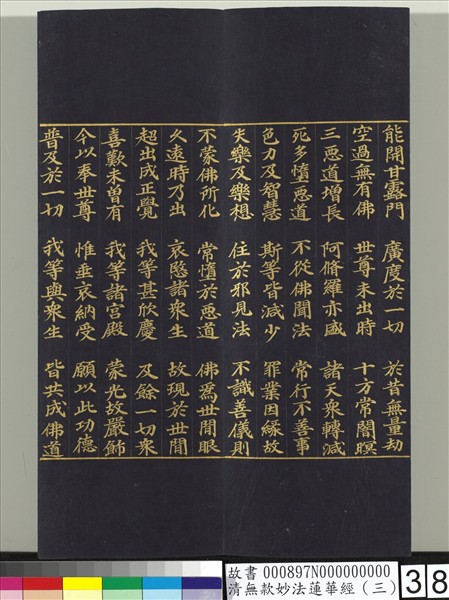 能開甘露門　廣度於一切　於昔無量劫
空過無有佛　世尊未出時　十方常闇暝
三惡道增長　阿脩羅亦盛　諸天眾轉減
死多墮惡道　不從佛聞法　常行不善事
色力及智慧　斯等皆減少　罪業因緣故
失樂及樂想　住於邪見法　不識善儀則
不蒙佛所化　常墮於惡道　佛為世間眼
久遠時乃出　哀愍諸眾生　故現於世間
超出成正覺　我等甚欣慶　及餘一切眾
喜歎未曾有　我等諸宮殿　蒙光故嚴飾
今以奉世尊　惟垂哀納受　願以此功德
普及於一切　我等與眾生　皆共成佛道
故書 000897N000000000
清無款妙法蓮華經（三）
38